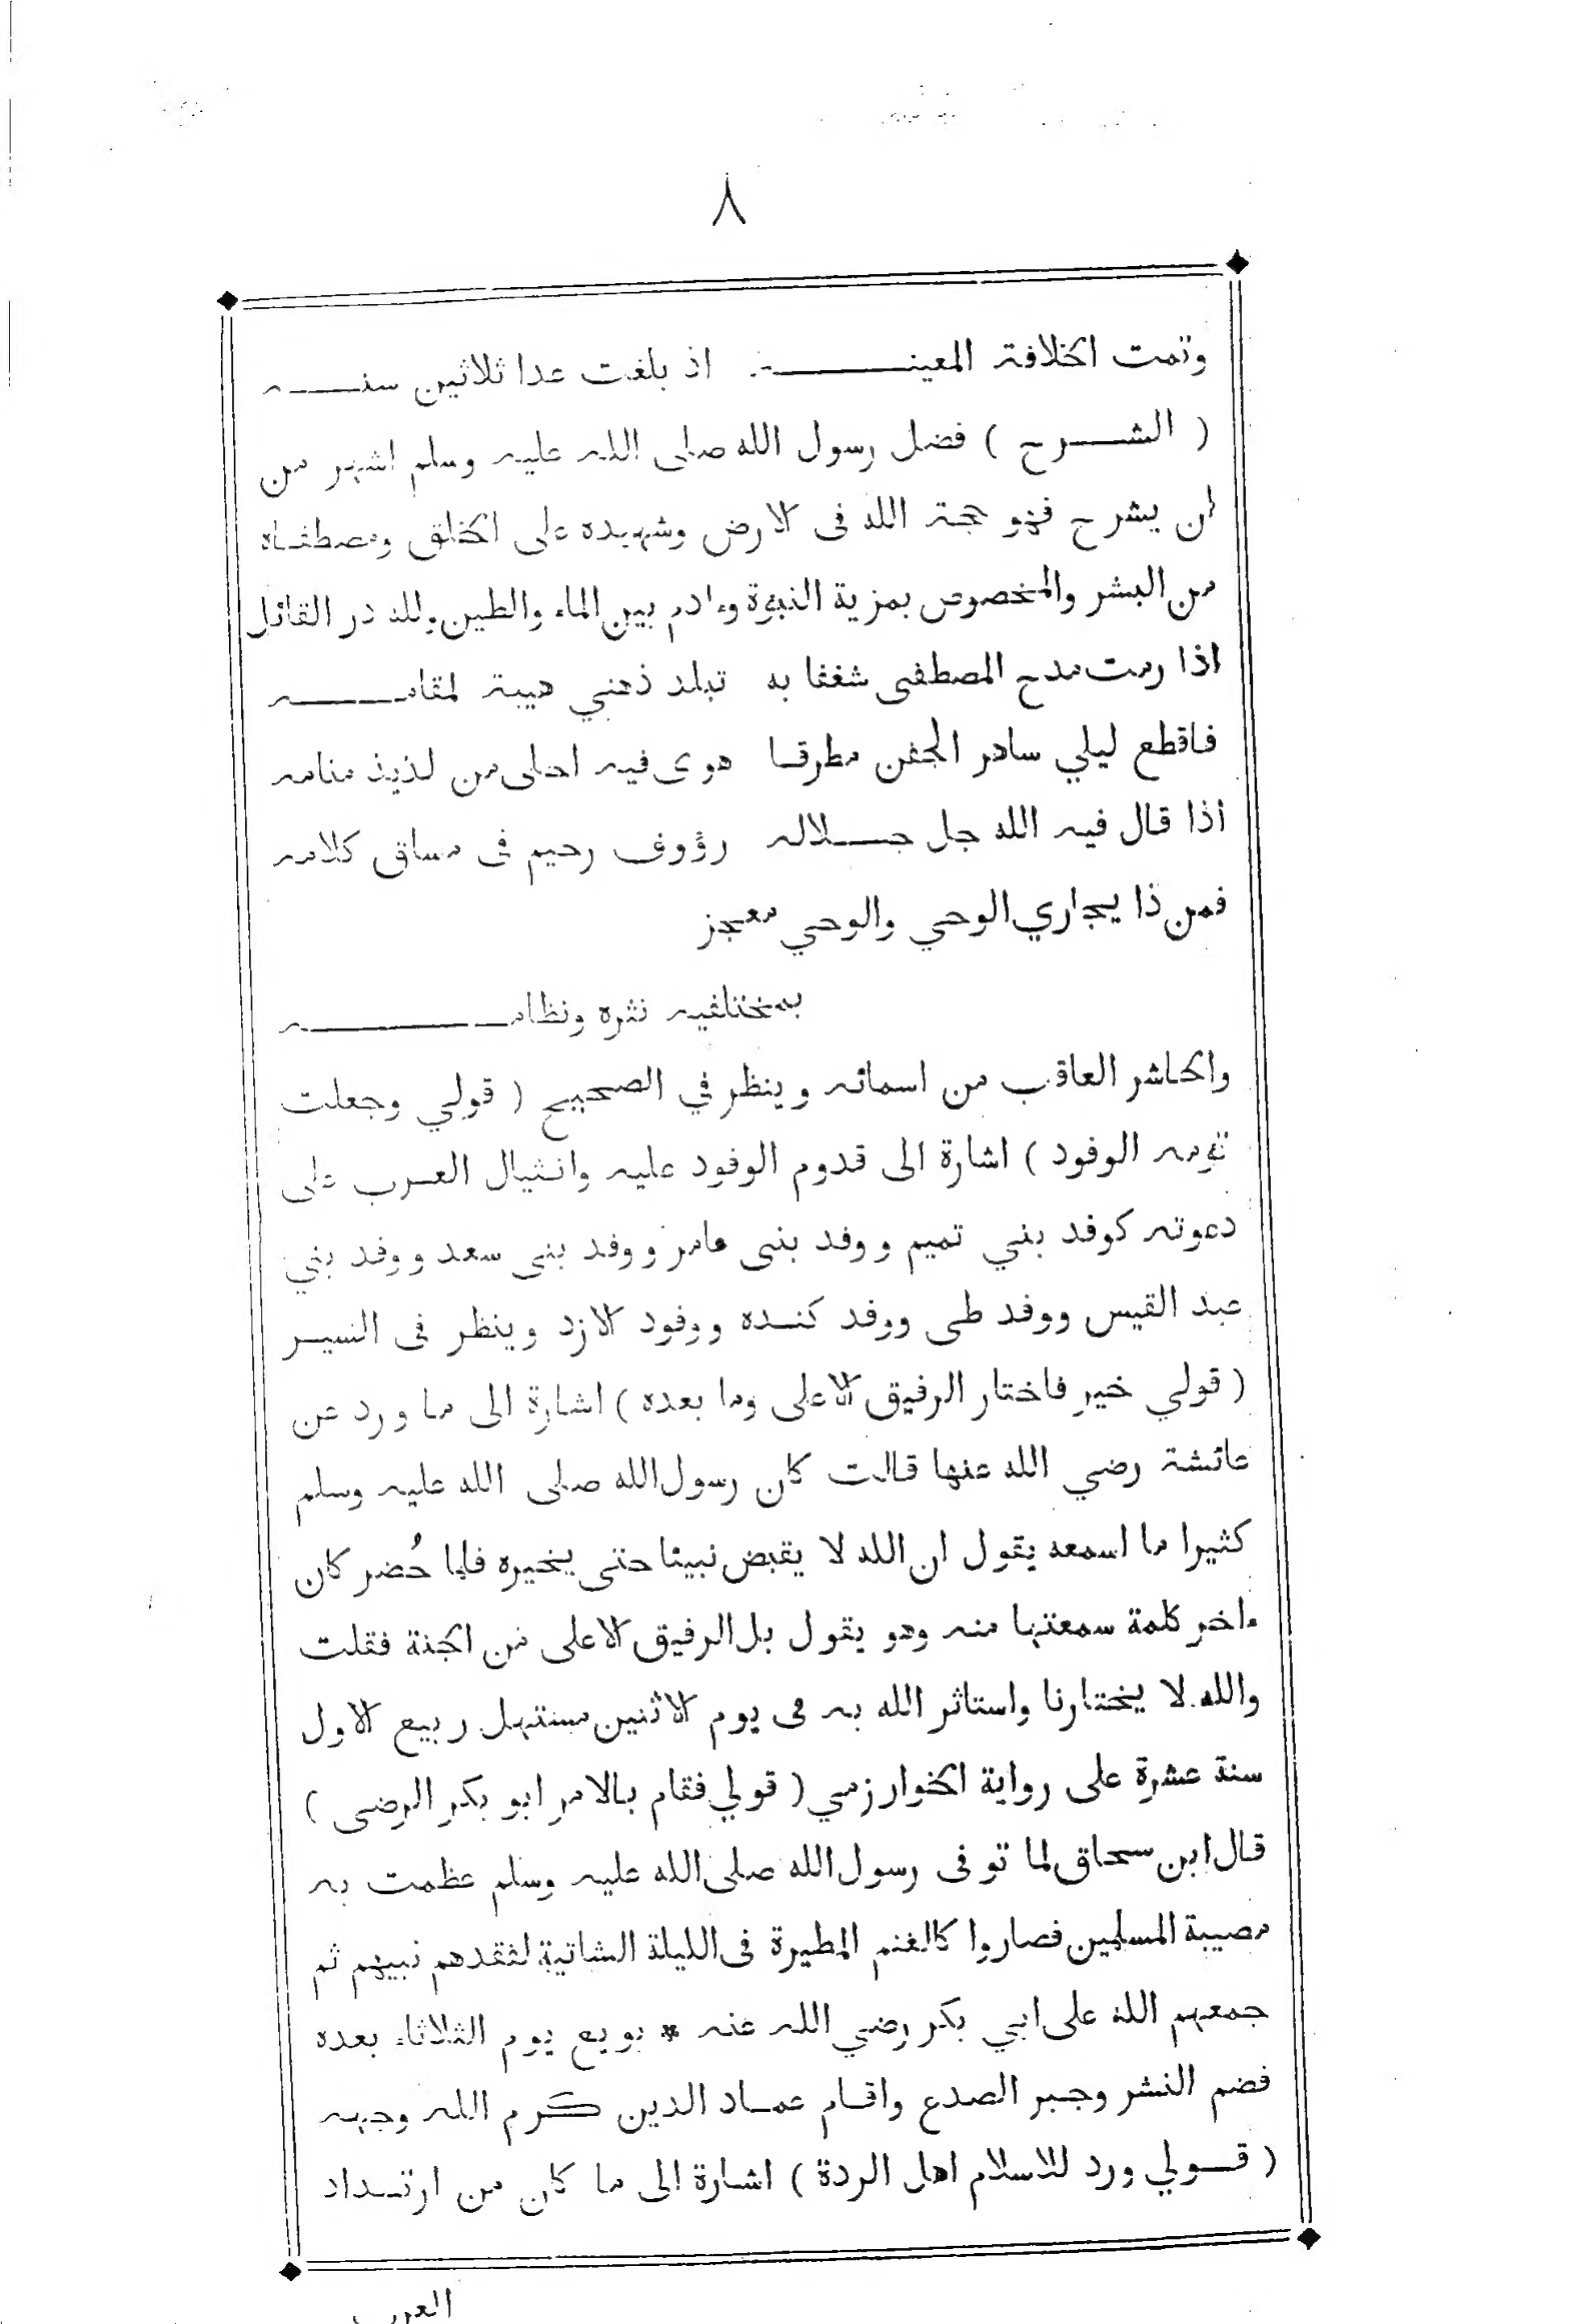 ٨
وتمت الخلافة المعينـــــــة اذ بلغت عدا ثلاثين سنـــــه
( الشـــرح ) فضل رسول الله صلى الله عليه وسلم اشهر من
ان يشرح فهو حجة الله فى الارض وشهيده على الخلق ومصطفاه
من البشر والمخصوص بمزية النبوة وءادم بين الماء والطين ولله در القائل
اذا رمت مدح المصطفى شغفا به تبلد ذهني هيبة لمقامـــــــه
فاقطع ليلي ساهر الجفن مطرقا هوى فيه احلى من لذيذ منامه
اذا قال فيه الله جل جـــلاله رؤوف رحيم فى مساق كلامه
فمن ذا يجاري الوحي والوحي معجز
بمختلفيه نثره ونظامـــــــــه
والحاشر العاقب من اسمائه وينظر في الصحيح ( قولي وجعلت
تؤمه الوفود ) اشارة الى قدوم الوفود عليه وانثيال العرب على
دعوته كوفد بني تميم ووفد بنى عامر ووفد بنى سعد ووفد بني
عبد القيس ووفد طى ووفد كنـده ووفود الازد وينظر فى السيـر
( قولي خير فاختار الرفيق الاعلى وما بعده ) اشارة الى ما ورد عن
عائشة رضي الله عنها قالت كان رسول الله صلى الله عليه وسلم
كثيرا ما اسمعه يقول ان الله لا يقبض نبيئا حتى يخيره فلما حُضر كان
ءاخر كلمة سمعتها منه وهو يقول بل الرفيق الاعلى من الجنة فقلت
والله لا يختارنا واستاثر الله به فى يوم الاثنين مستهل ربيع الاول
سنة عشرة على رواية الخوارزمي ( قولي فقام بالامر ابو بكر الرضى )
قال ابن سحاق لما توفى رسول الله صلى الله عليه وسلم عظمت به
مصيبة المسلمين فصاروا كالغنم المطيرة فى الليلة الشاتية لفقدهم نبيهم ثم
جمعهم الله على ابي بكر رضي الله عنه * بويع يوم الثلاثاء بعده
فضم النشر وجبر الصدع واقـام عمـاد الدين كـرم الله وجهه
( قـــولي ورد للاسلام اهل الردة ) اشـارة الى ما كان من ارتــداد
العرب